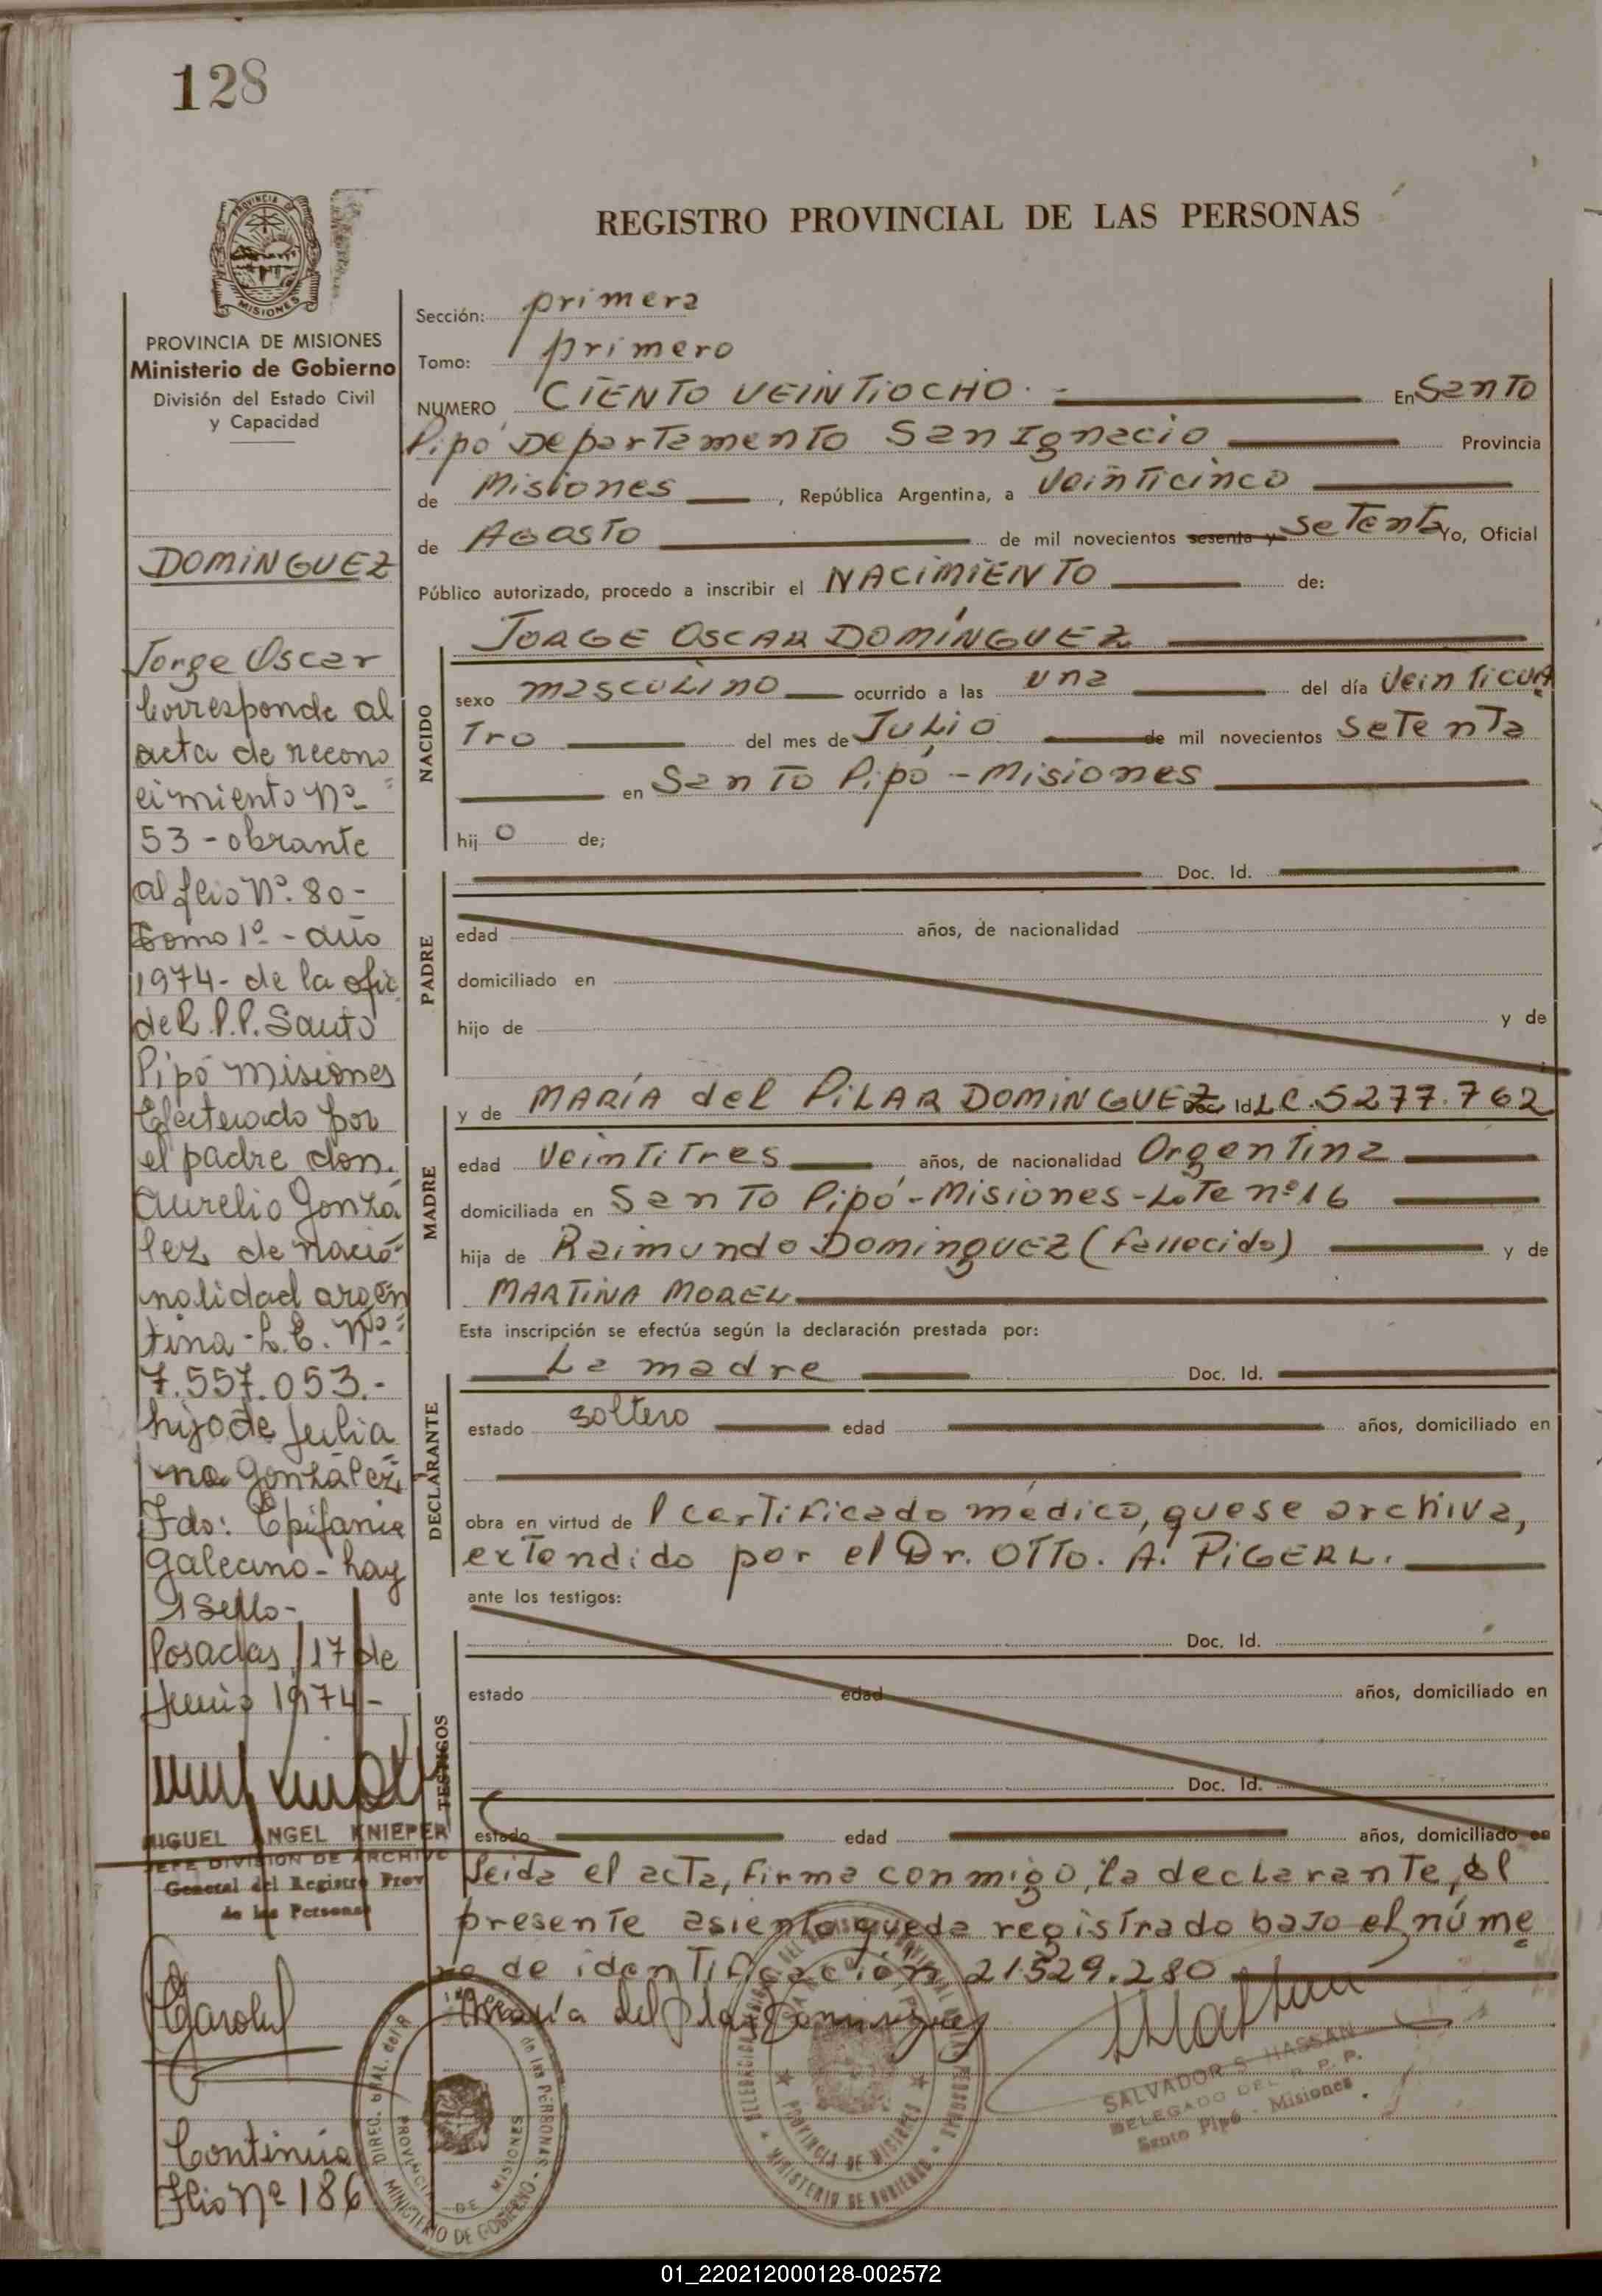 128
REGISTRO PROVINCIAL DE LAS PERSONAS
PROVINCIA DE MISIONES
Ministerio de Gobierno
División del Estado Civil
y Capacidad
DOMINGUEZ
Jorge Oscar
Corresponde al
acta de recono
cimiento Nº
53 - obrante
al flio Nº. 80 -
Tomo 1º - año
1974 - de la ofic
del R.P.P. Santo
Pipó Misiones
Efectuado por
el padre don.
Aurelio Gonzá
lez de nacio
nalidad argen
tina - L.E. Nº
7.557.053.-
hijo de Julia
na González
Fdo: Epifanio
Galeano - hay
1 sello -
Posadas, 17 de
Junio 1974 -
MIGUEL ANGEL KNIEPER
JEFE DIVISION DE ARCHIVO
General del Registro Prov
de las Personas
Continúa
Flio Nº 186
Sección: primera
Tomo: primero
NUMERO CIENTO VEINTIOCHO.- En Santo
Pipó Departamento San Ignacio Provincia
de Misiones, República Argentina, a veinticinco
de Agosto de mil novecientos sesenta y setenta Yo, Oficial
Público autorizado, procedo a inscribir el NACIMIENTO de:
NACIDO
JORGE OSCAR DOMÍNGUEZ
sexo masculino ocurrido a las una del día veinticua
tro del mes de Julio de mil novecientos setenta
en Santo Pipó - Misiones
hijo de;
PADRE
Doc. Id.
edad años, de nacionalidad
domiciliado en
hijo de y de
MADRE
y de MARÍA del PILAR DOMINGUEZ Doc. Id. L.C. 5277.762
edad veintitres años, de nacionalidad Argentina
domiciliada en Santo Pipó - Misiones - Lote nº 16
hija de Raimundo Dominguez (fallecido) y de
MARTINA MOREL
Esta inscripción se efectúa según la declaración prestada por:
DECLARANTE
La madre Doc. Id.
estado soltero edad años, domiciliado en
obra en virtud de l certificado médico, que se archiva,
extendido por el Dr. OTTO. A. PIGERL.
ante los testigos:
TESTIGOS
Doc. Id.
estado edad años, domiciliado en
Doc. Id.
estado edad años, domiciliado en
leida el acta, firma conmigo, la declarante, el
presente asiento queda registrado bajo el núme
ro de identificación 21.529.280
María del Pilar Dominguez
SALVADOR S. HASSAN
DELEGADO DEL R. P. P.
Santo Pipó - Misiones
PROVINCIA DE MISIONES
MINISTERIO DE GOBIERNO
01_220212000128-002572